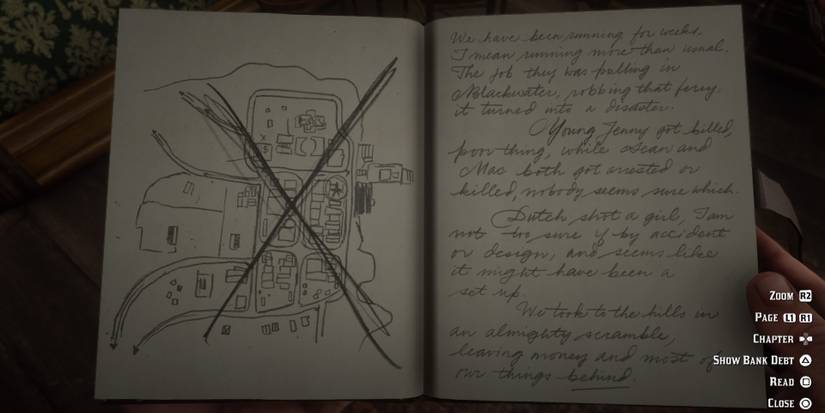 We have been running for weeks.
I mean running more than usual.
The job they was pulling in
Blackwater, robbing that ferry.
it turned into a disaster.
Young Jenny got killed,
poor thing, while Sean and
Mac both got arrested or
killed, nobody seems sure which.
Dutch shot a girl, I am
not too sure if by accident
or design, and seems like
it might have been a
set up.
We took to the hills in
an almighty scramble,
leaving money and most of
our things behind.
ZOOM R2
PAGE L1 R1
CHAPTER
SHOW BANK DEBT
READ
CLOSE